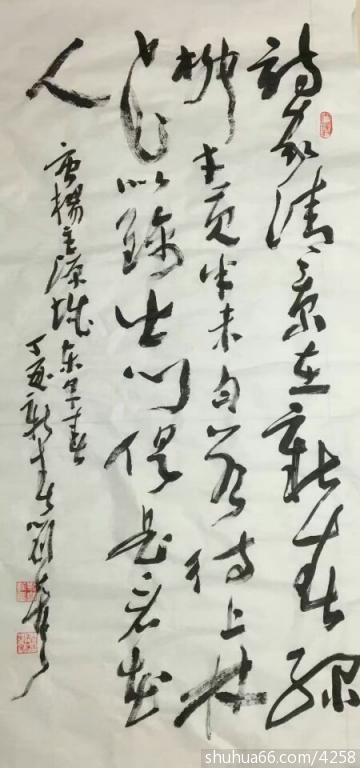 詩家清景在新春綠
柳才黄半未匀若待上林
花似錦出門俱是看花
人
唐楊巨源城東早春
丁酉新春
shuhua66.com/4258